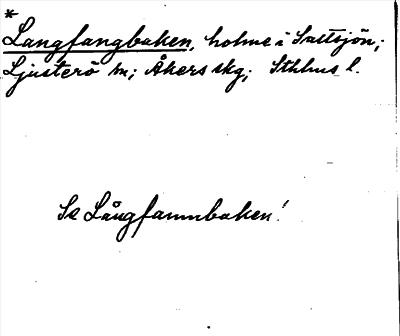 *
Langfangbaken, holme i Saltsjön;
Ljusterö sn; Åkers skg; Sthlms l.
Se Långfamnbaken!